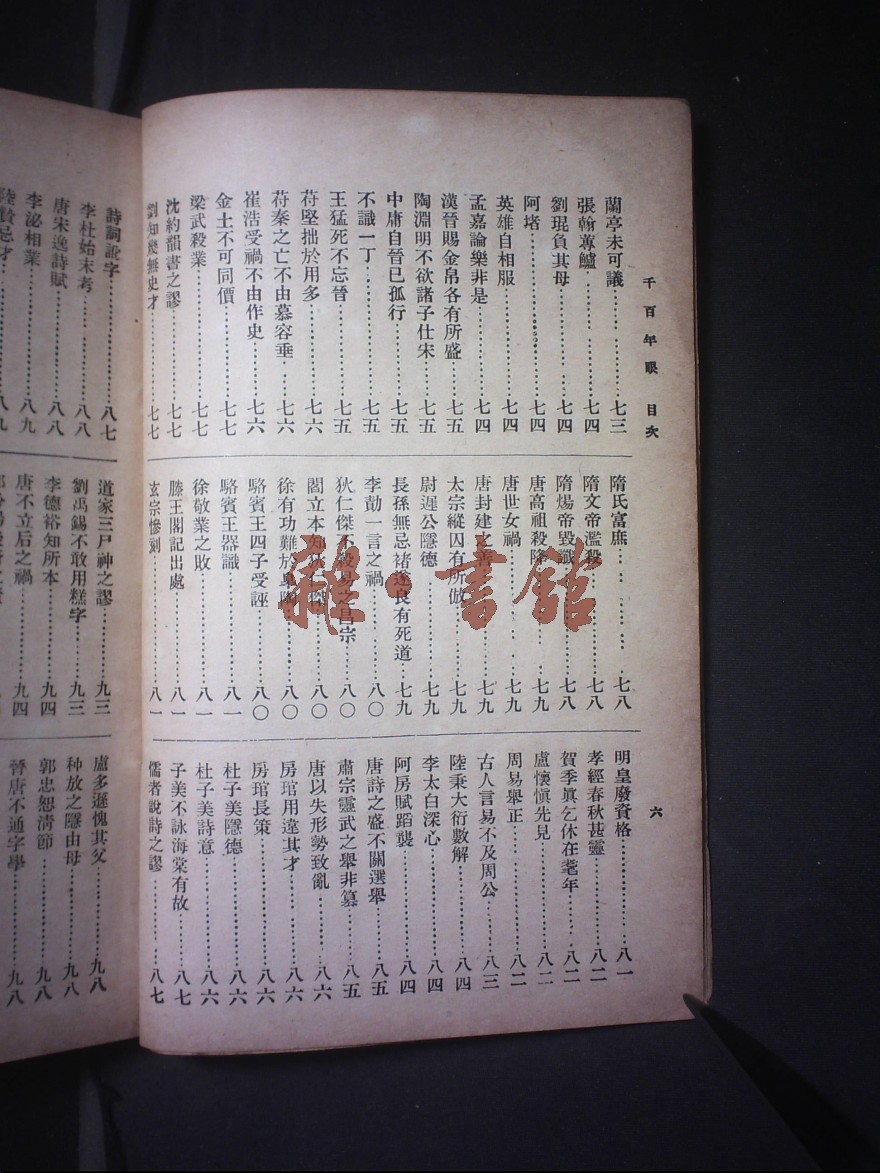 千百年眼 目次
六
蘭亭未可議……七三
張翰蓴鱸……七四
劉琨負其母……七四
阿堵……七四
英雄自相服……七四
孟嘉論樂非是……七四
漢晉賜金帛各有所盛……七五
陶淵明不欲諸子仕宋……七五
中庸自晉已孤行……七五
不識一丁……七五
王猛死不忘晉……七五
苻堅拙於用多……七六
苻秦之亡不由慕容垂……七六
崔浩受禍不由作史……七六
金土不可同價……七七
梁武殺業……七七
沈約韻書之謬……七七
劉知幾無史才……七七
隋氏富庶……七八
隋文帝濫殺……七八
隋煬帝毀讖……七八
唐高祖殺降……七九
唐世女禍……七九
唐封建之善……七九
太宗縱囚有所倣……七九
尉遲公隱德……七九
長孫無忌褚遂良有死道……七九
李勣一言之禍……八〇
狄仁傑不殺易之昌宗……八〇
閻立本知狄仁傑……八〇
徐有功難於皋陶……八〇
駱賓王四子受誣……八〇
駱賓王器識……八一
徐敬業之敗……八一
滕王閣記出處……八一
玄宗慘刻……八一
明皇廢資格……八一
孝經春秋甚靈……八二
賀季眞乞休在耄年……八二
盧懷愼先見……八二
周易舉正……八二
古人言易不及周公……八三
陸秉大衍數解……八四
李太白深心……八四
阿房賦蹈襲……八四
唐詩之盛不關選舉……八五
肅宗靈武之舉非篡……八五
唐以失形勢致亂……八六
房琯用違其才……八六
房琯長策……八六
杜子美隱德……八六
杜子美詩意……八六
子美不詠海棠有故……八七
儒者說詩之謬……八七
詩詞訛字……八七
李杜始末考……八八
唐宋逸詩賦……八八
李泌相業……八九
道家三尸神之謬……九三
劉禹錫不敢用糕字……九三
李德裕知所本……九四
唐不立后之禍……九四
盧多遜愧其父……九八
种放之隱由母……九八
郭忠恕清節……九八
晉唐不通字學……九八
雜·書館